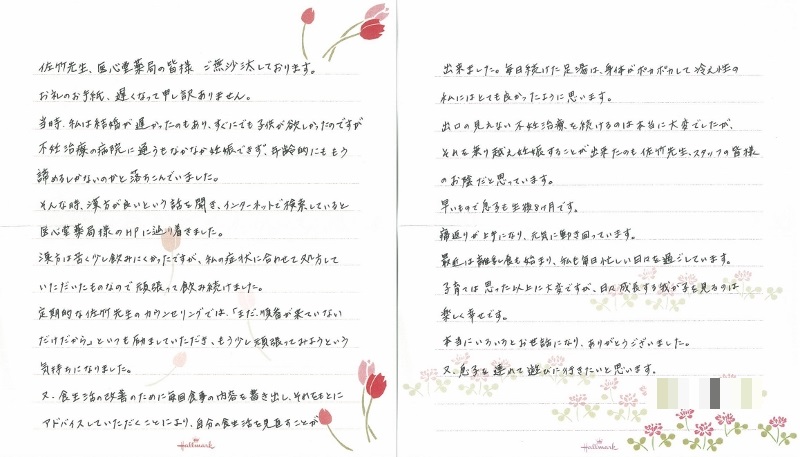 佐竹先生、医心堂薬局の皆様 ご無沙汰しております。
お礼のお手紙、遅くなって申し訳ありません。
当時、私は結婚が遅かったのもあり、すぐにでも子供が欲しかったのですが
不妊治療の病院に通うもなかなか妊娠できず、年齢的にももう
諦めるしかないのかと落ちこんでいました。
そんな時、漢方が良いという話を聞き、インターネットで検索していると
医心堂薬局様のHPに辿り着きました。
漢方は苦く少し飲みにくかったですが、私の症状に合わせて処方して
いただいたものなので頑張って飲み続けました。
定期的な佐竹先生のカウンセリングでは、「まだ、順番が来ていない
だけだから」といつも励ましていただき、もう少し頑張ってみようという
気持ちになりました。
又、食生活の改善のために毎回食事の内容を書き出し、それをもとに
アドバイスしていただくことにより、自分の食生活を見直すことが
Hallmark
出来ました。毎日続けた足湯は、身体がポカポカして冷え性の
私にはとても良かったように思います。
出口の見えない不妊治療を続けるのは本当に大変でしたが、
それを乗り越え妊娠することが出来たのも佐竹先生、スタッフの皆様
のお陰だと思っています。
早いもので息子も生後8ヶ月です。
寝返りが上手になり、元気に動き回っています。
最近は離乳食も始まり、私も毎日忙しい日々を過ごしています。
子育ては思った以上に大変ですが、日々成長する我が子を見るのは
楽しく幸せです。
本当にいろいろとお世話になり、ありがとうございました。
又、息子を連れて遊びに行きたいと思います。
Hallmark